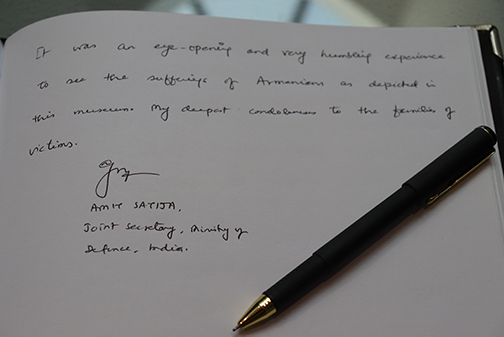 It was an eye-opening and very humbling experience
to see the sufferings of Armanians as depicted in
this museum. My deepest condolences to the families of
victims.
AMIT SATIJA,
Joint Secretary, Ministry of
Defence, India.